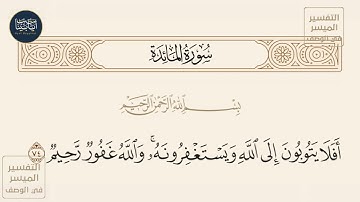 آيات بينات
التفسير
الميسر
في الوصف
سُورَةُ المَائِدَةِ
بِسْمِ اللَّهِ الرَّحْمَٰنِ الرَّحِيمِ
أَفَلَا يَتُوبُونَ إِلَى اللَّهِ وَيَسْتَغْفِرُونَهُ ۚ وَاللَّهُ غَفُورٌ رَّحِيمٌ ٧٤
التفسير
الميسر
في الوصف